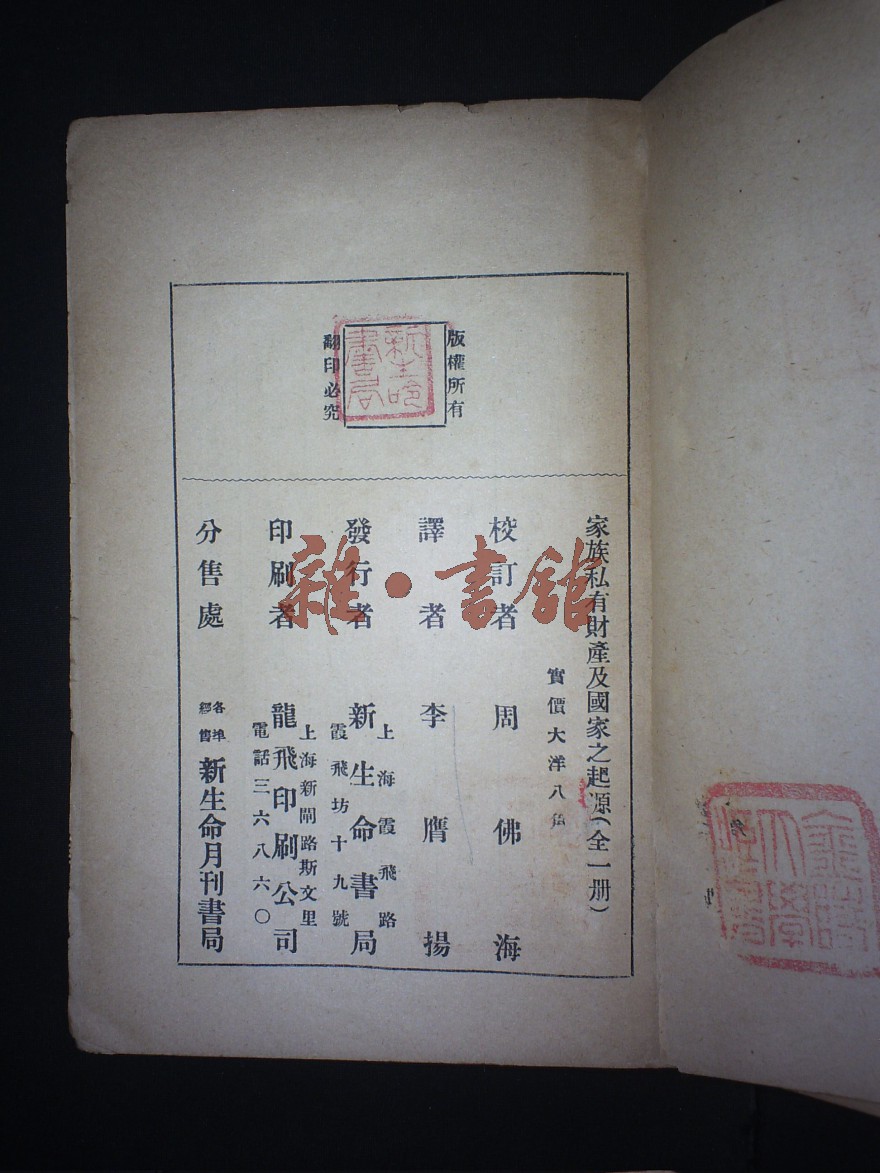 版權所有
翻印必究
新生命書局
家族私有財產及國家之起源(全一册)
實價大洋八角
校訂者 周佛海
譯者 李膺揚
發行者 新生命書局
上海霞飛路
霞飛坊十九號
印刷者 龍飛印刷公司
上海新閘路斯文里
電話三六八六〇
分售處 各埠經售 新生命月刊書局
雜·書館